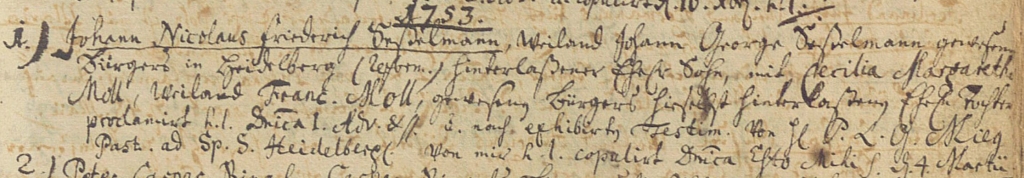 1753.
1.) Johann Nicolaus Friederich Seßelmann, Weiland Johann George Seßelmann gewesenen
Bürgers in Heidelberg hinterlaßener Ehel. Sohn, mit Cecilia Margaretha
Moll, Weiland Franc. Moll, gewesenen Bürgers hieselbst hinterlaßenen Ehel. Tochter
proclamirt h. l. Dnica 1. Adv. & ff. u. nach exhibirten Testim. von H. P. L. G. Mieg
Past. ad Sp. S. Heidelberg. von mir h. l. copulirt Dnica d. 4. Martii
2.) Peter Caspar